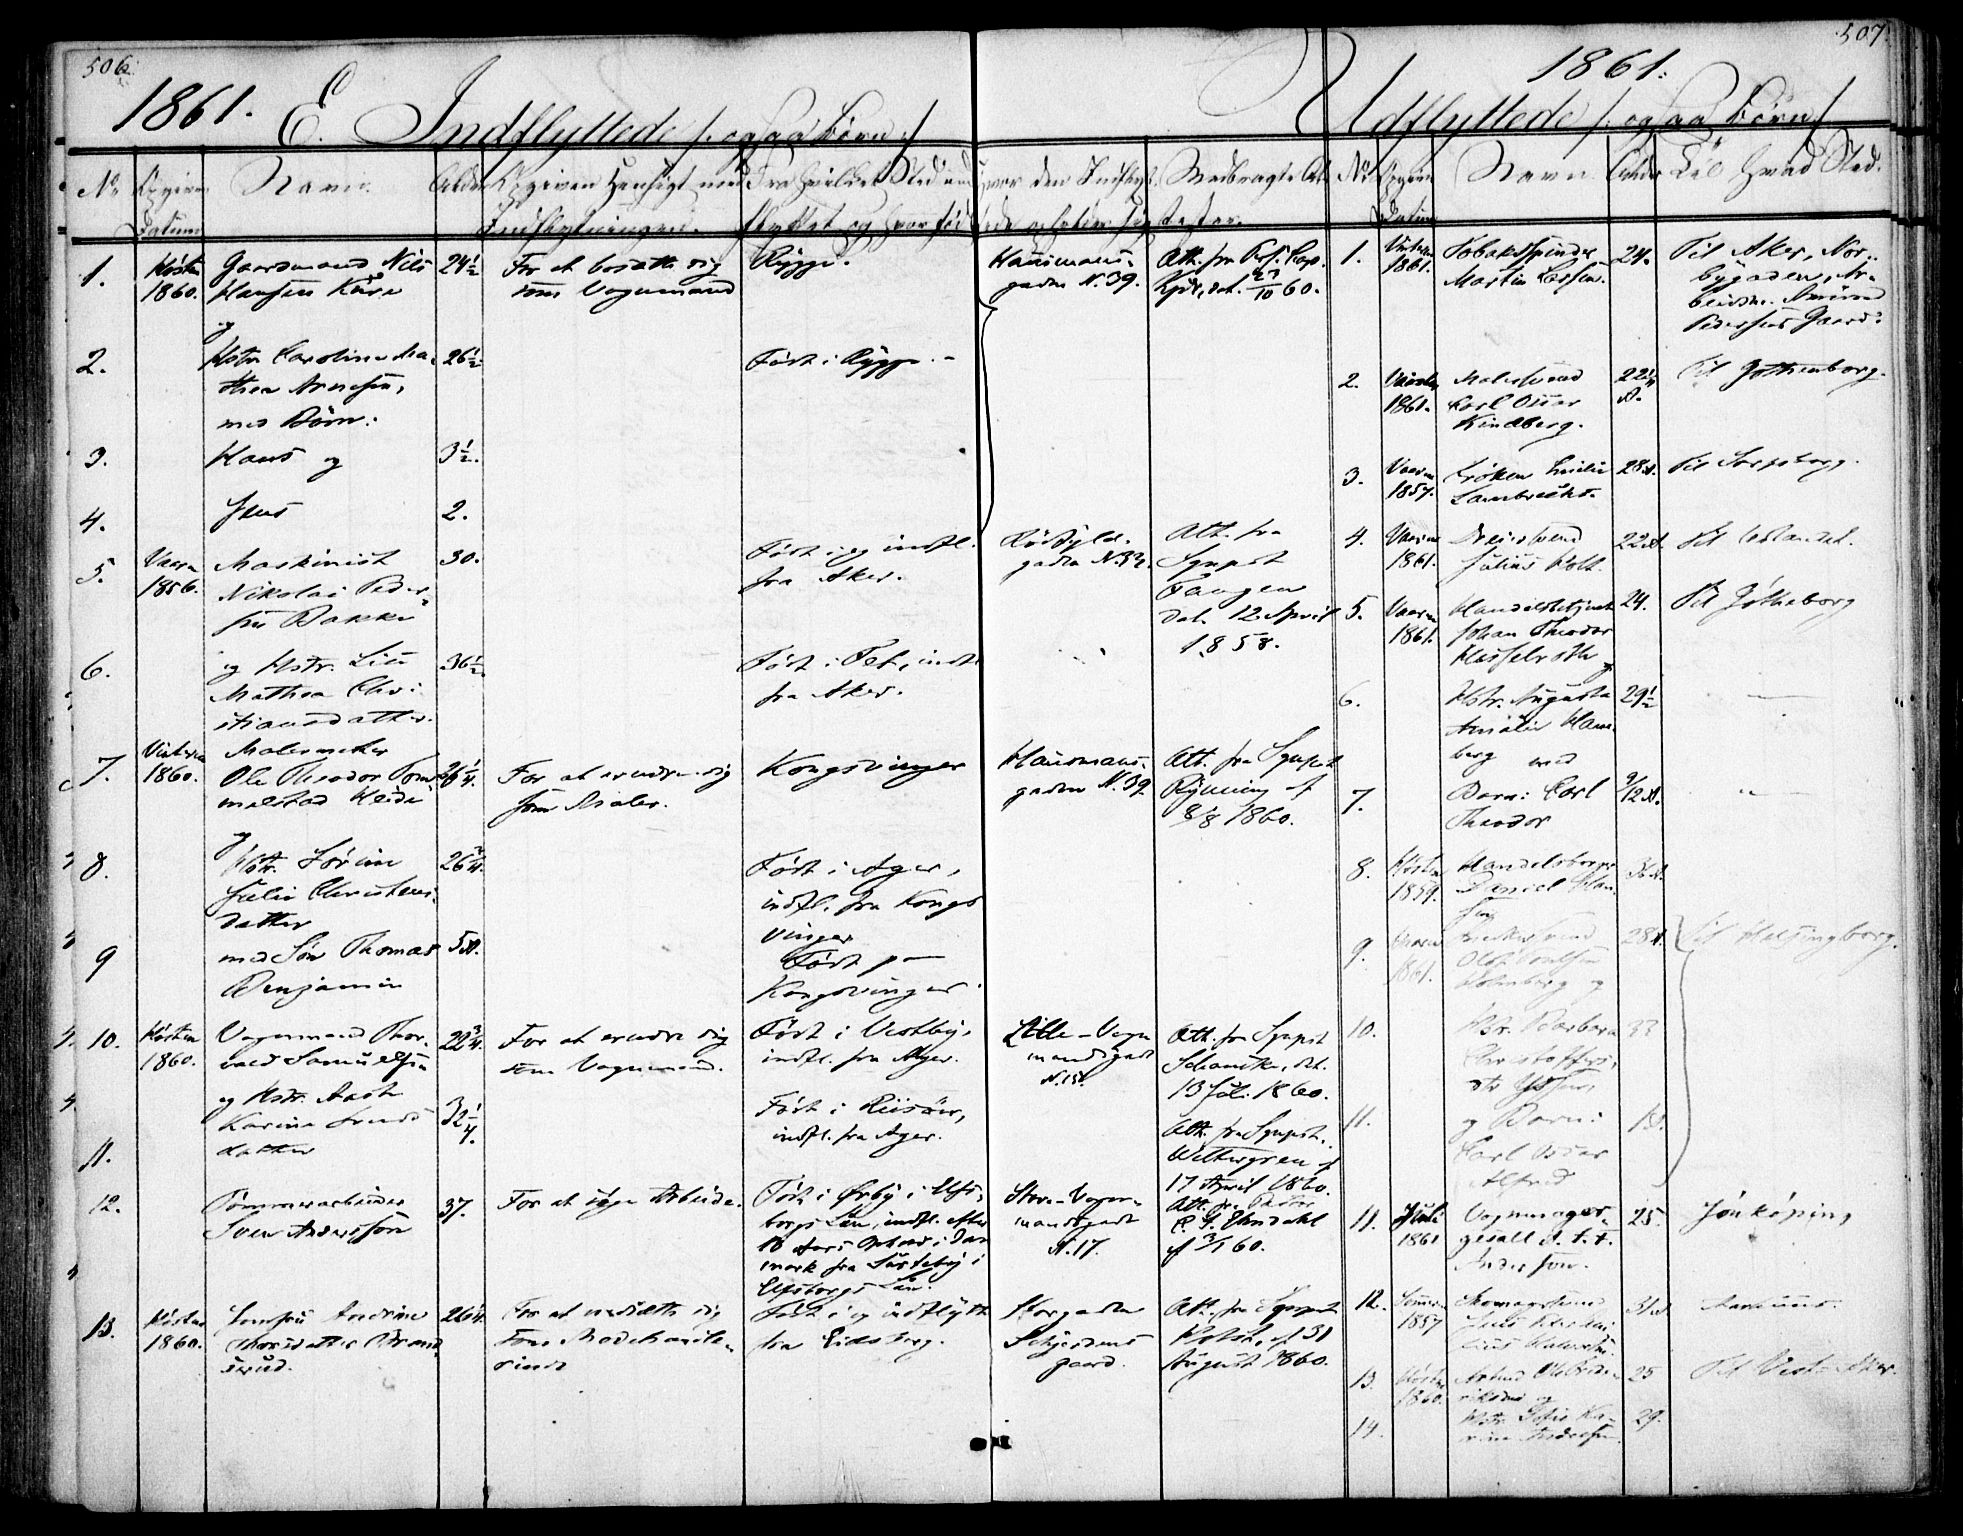 506
1861. E. Indflyttede /: ogsaa Børn :/
No
Opgiven Datum
Navn.
Alder
Opgiven Hensigt med Indflytningen.
Fra hvilket Sted ind-
flyttet og hvor født
Hvor den Indflyt-
Medbragte At-
tester.
1.
Høsten
1860.
Gaardmand Nils
Hansen
24½
For at bosætte sig
som Vognmand
Rygge.
Hausmans-
gaden N. 39.
Att. fra
23/10 60.
2.
og
Hstr Caroline Ma-
thea Arnesen,
med Børn:
26½
Født i Rygge.
3.
Hans og
3½.
4.
Jens
2.
5.
Vaaren
1856.
Maskinist
Nikolai Peder-
sen Bakke
30.
Født i og indfl.
fra Aker.
gaden N. 32.
Att. fra
Sgnpst
Fangen
dat. 12 April
1858.
6.
og Hstr. Lisa
Mathea Chri-
stiansdatter.
36½
Født i Fet, indfl.
fra Aker.
7.
Vinteren
1860.
Malermester
Ole Theodor
26¼.
For at ernære sig
som Maler.
Kongsvinger
Hausmans-
gaden N. 39.
Att. fra Sgnpst
Rynning af
8/8 1860.
8.
og
Hstr. Sørine
Julie Christens-
datter
26¾.
Født i Ager,
indfl. fra Kongs
vinger
9
med Søn Thomas
Benjamin
5 A.
Født paa
Kongsvinger.
10.
Høsten
1860.
Vognmand Thor-
vald Samuelsen
22¾.
For at ernære sig
som Vognmand.
Født i Vestby,
indfl. fra Ager.
Lille-Vogn
mandsgade
N. 15.
Att. fra Sgnpst
Schanke, dat.
13 Juli 1860.
11.
og Hstr. Aaste
Karine
datter
32¼.
Født i Riisøer,
indfl. fra Ager.
Att. fra Sgnpst.
Wettergren af
17 April 1860.
12.
Tømmerarbeider
Sven Andersson
37.
For at søge Arbeide.
Født i Ørby i Elfs-
borgs Län, indfl. efter
18 Aars Ophold i Dan
mark fra i
Elfsborgs Län.
Store-Vogn-
mandsgade
N. 17.
Att. fra Pastor
af 3/1 60.
13.
Høsten
1860.
Jomfru Andrine
Thorsdatter
26¼.
For at nedsætte sig
som Modehandle-
rinde
Født i og indflyttet
fra Eidsberg.
Storgaden
gaard.
Att. fra Sgnpst
Holst, af 31
August 1860.
507.
1861.
Udflyttede /: ogsaa Børn :/
No
Opgiven
Datum
Navn
Alder
Til hvad Sted.
1.
Vinteren
1861.
Tobakspinder
Martin
24.
Til Aker, Nor-
bygaden, Ar-
beidsm. Amund
Pedersens Gaard.
2.
Vaaren
1861.
Malersvend
Carl Oscar
Kindberg.
22¼
A.
Til Gothenborg.
3.
Vaaren
1857.
Frøken Emilie
Lambrechts.
28 A.
Til Sarpsborg.
4.
Vaaren
1861.
Dreiersvend
Julius Holt.
22 A.
Til Udlandet.
5.
Vaaren
1861.
Handelsbetjent
Johan Theodor
Hasselroth
og
24.
Til Gøtheborg
6.
Hstr. Augusta
Amalie
berg med
29½
7.
Barn: Carl
Theodor
9/12 A.
8.
Høsten
1859.
Handelsborger
Daniel Han-
sen
36 A.
9.
Vaaren
1861.
Holmberg og
28 A.
Til Helsingborg.
10.
Hstr. Barbara
33
11.
og Barn:
Carl Oscar
Alfred
1 A.
11.
Juli
1861
Vognmager-
gesell A. t. t.
Anderson.
25.
Jönköping
12.
Sommeren
1857
Skomagersvend
Jens
31 A
13.
Høsten
1860.
Arbmd Ole Frede-
riksen og
25
Til Vest-Aker.
14.
Hstr. Sofie Ka-
rine Andersen
29.